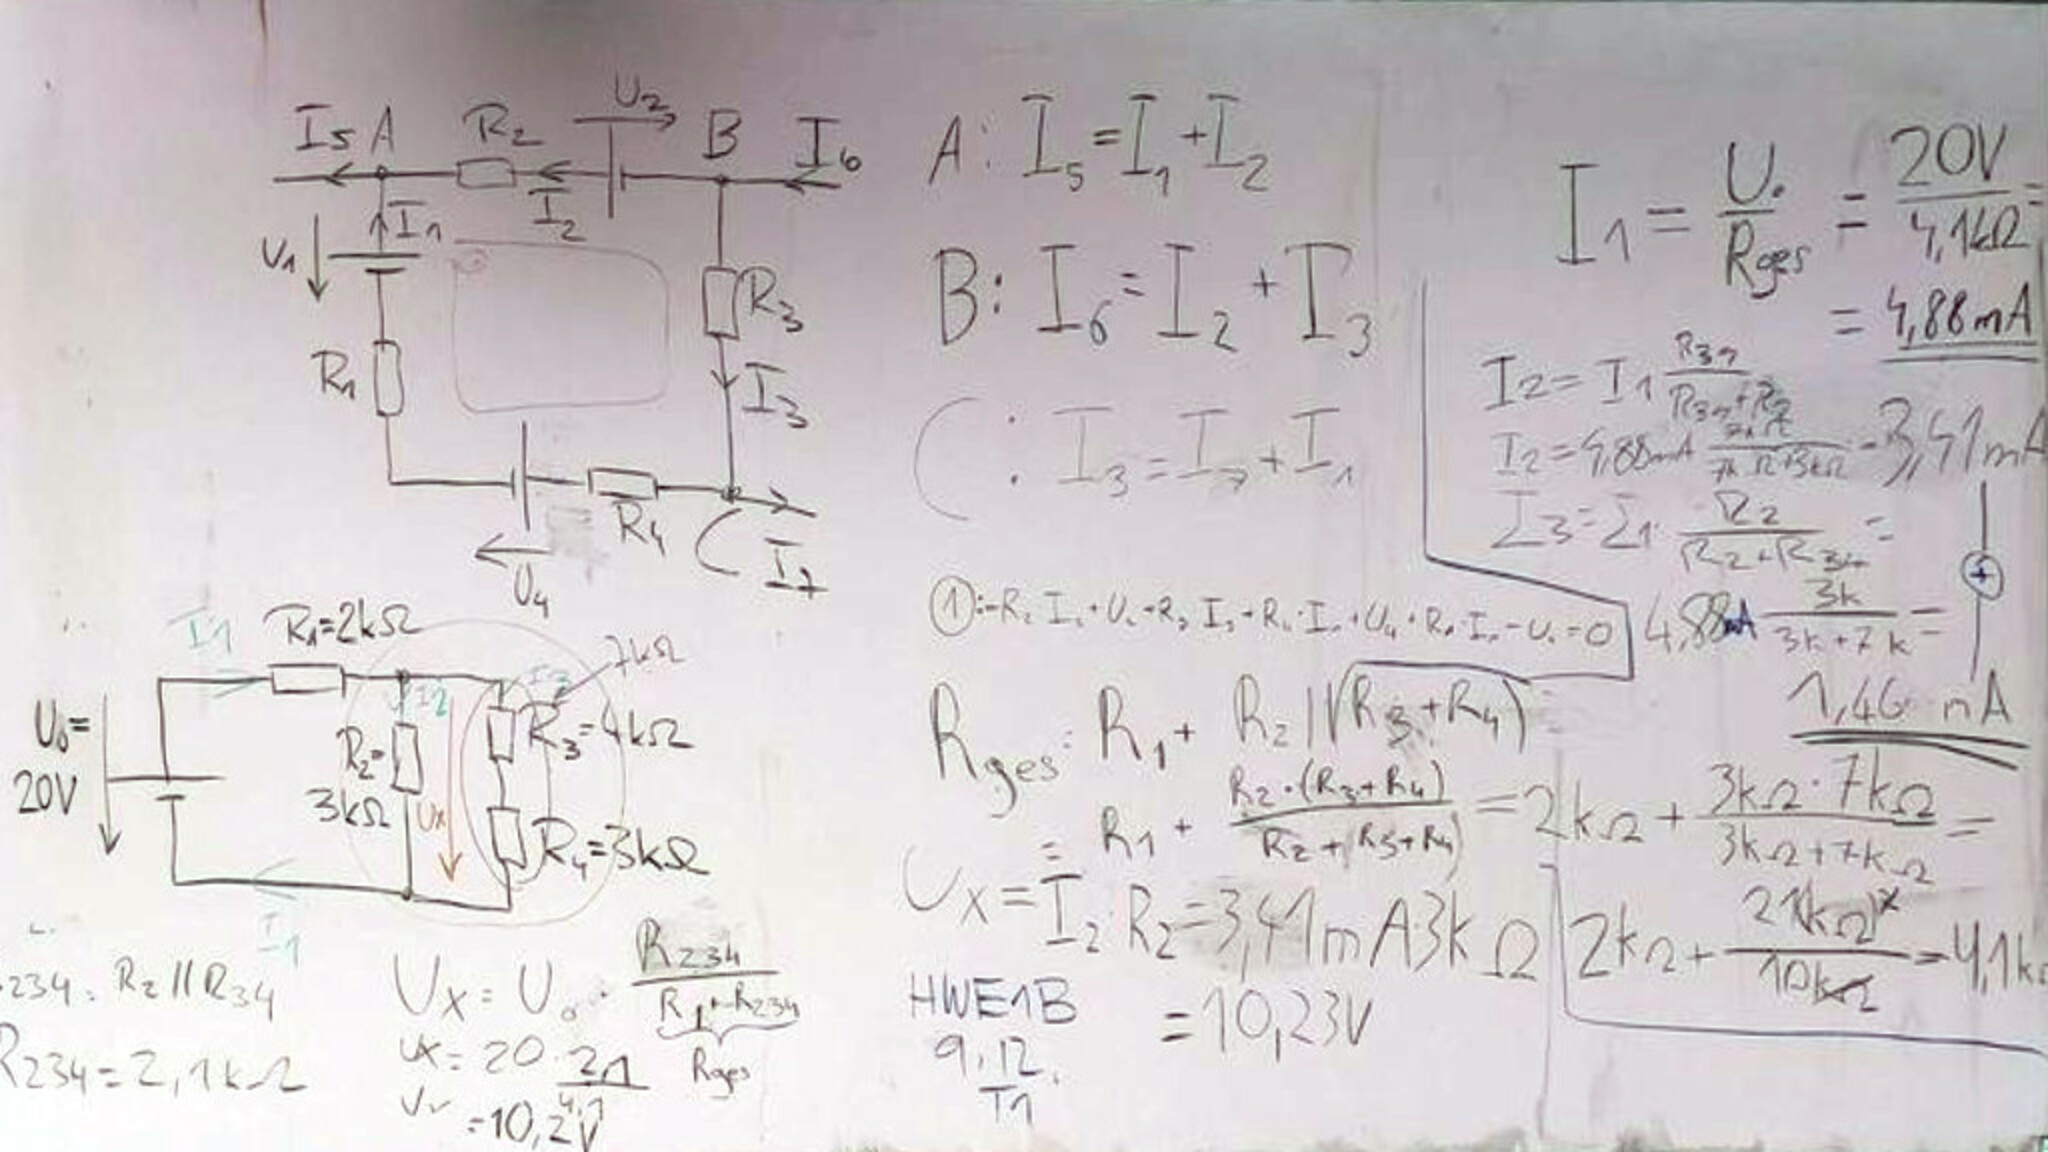 I5 A R2 U2 B I6
I2
U1 I1
R3
R1
I3
R4 C
U4 I7
I1 R1=2kΩ
7kΩ
I2 I3
U0=
20V
R2=
3kΩ
Ux
R3=4kΩ
R4=3kΩ
I1
R234: R2||R34
R234=2,1kΩ
Ux= U0 · R234 / R1+R234
Rges
Ux= 20 · 2,1 / 4,1
=10,2V
A: I5=I1+I2
B: I6=I2+I3
C: I3=I7+I1
Rges: R1+ R2||(R3+R4) =
= R1 + R2·(R3+R4) / R2+(R3+R4) = 2kΩ + 3kΩ·7kΩ / 3kΩ+7kΩ =
2kΩ+ 21(kΩ)² / 10kΩ =4,1kΩ
Ux= I2·R2=3,41mA·3kΩ
=10,23V
HWE1B
9.12.
T1
I1 = U0 / Rges = 20V / 4,1kΩ =
= 4,88mA
I2= I1 R34 / R34+R2
I2=4,88mA 7kΩ / 7kΩ+3kΩ =3,41mA
I3=I1· R2 / R2+R34 =
+
4,88mA 3k / 3k+7k =
1,46 mA